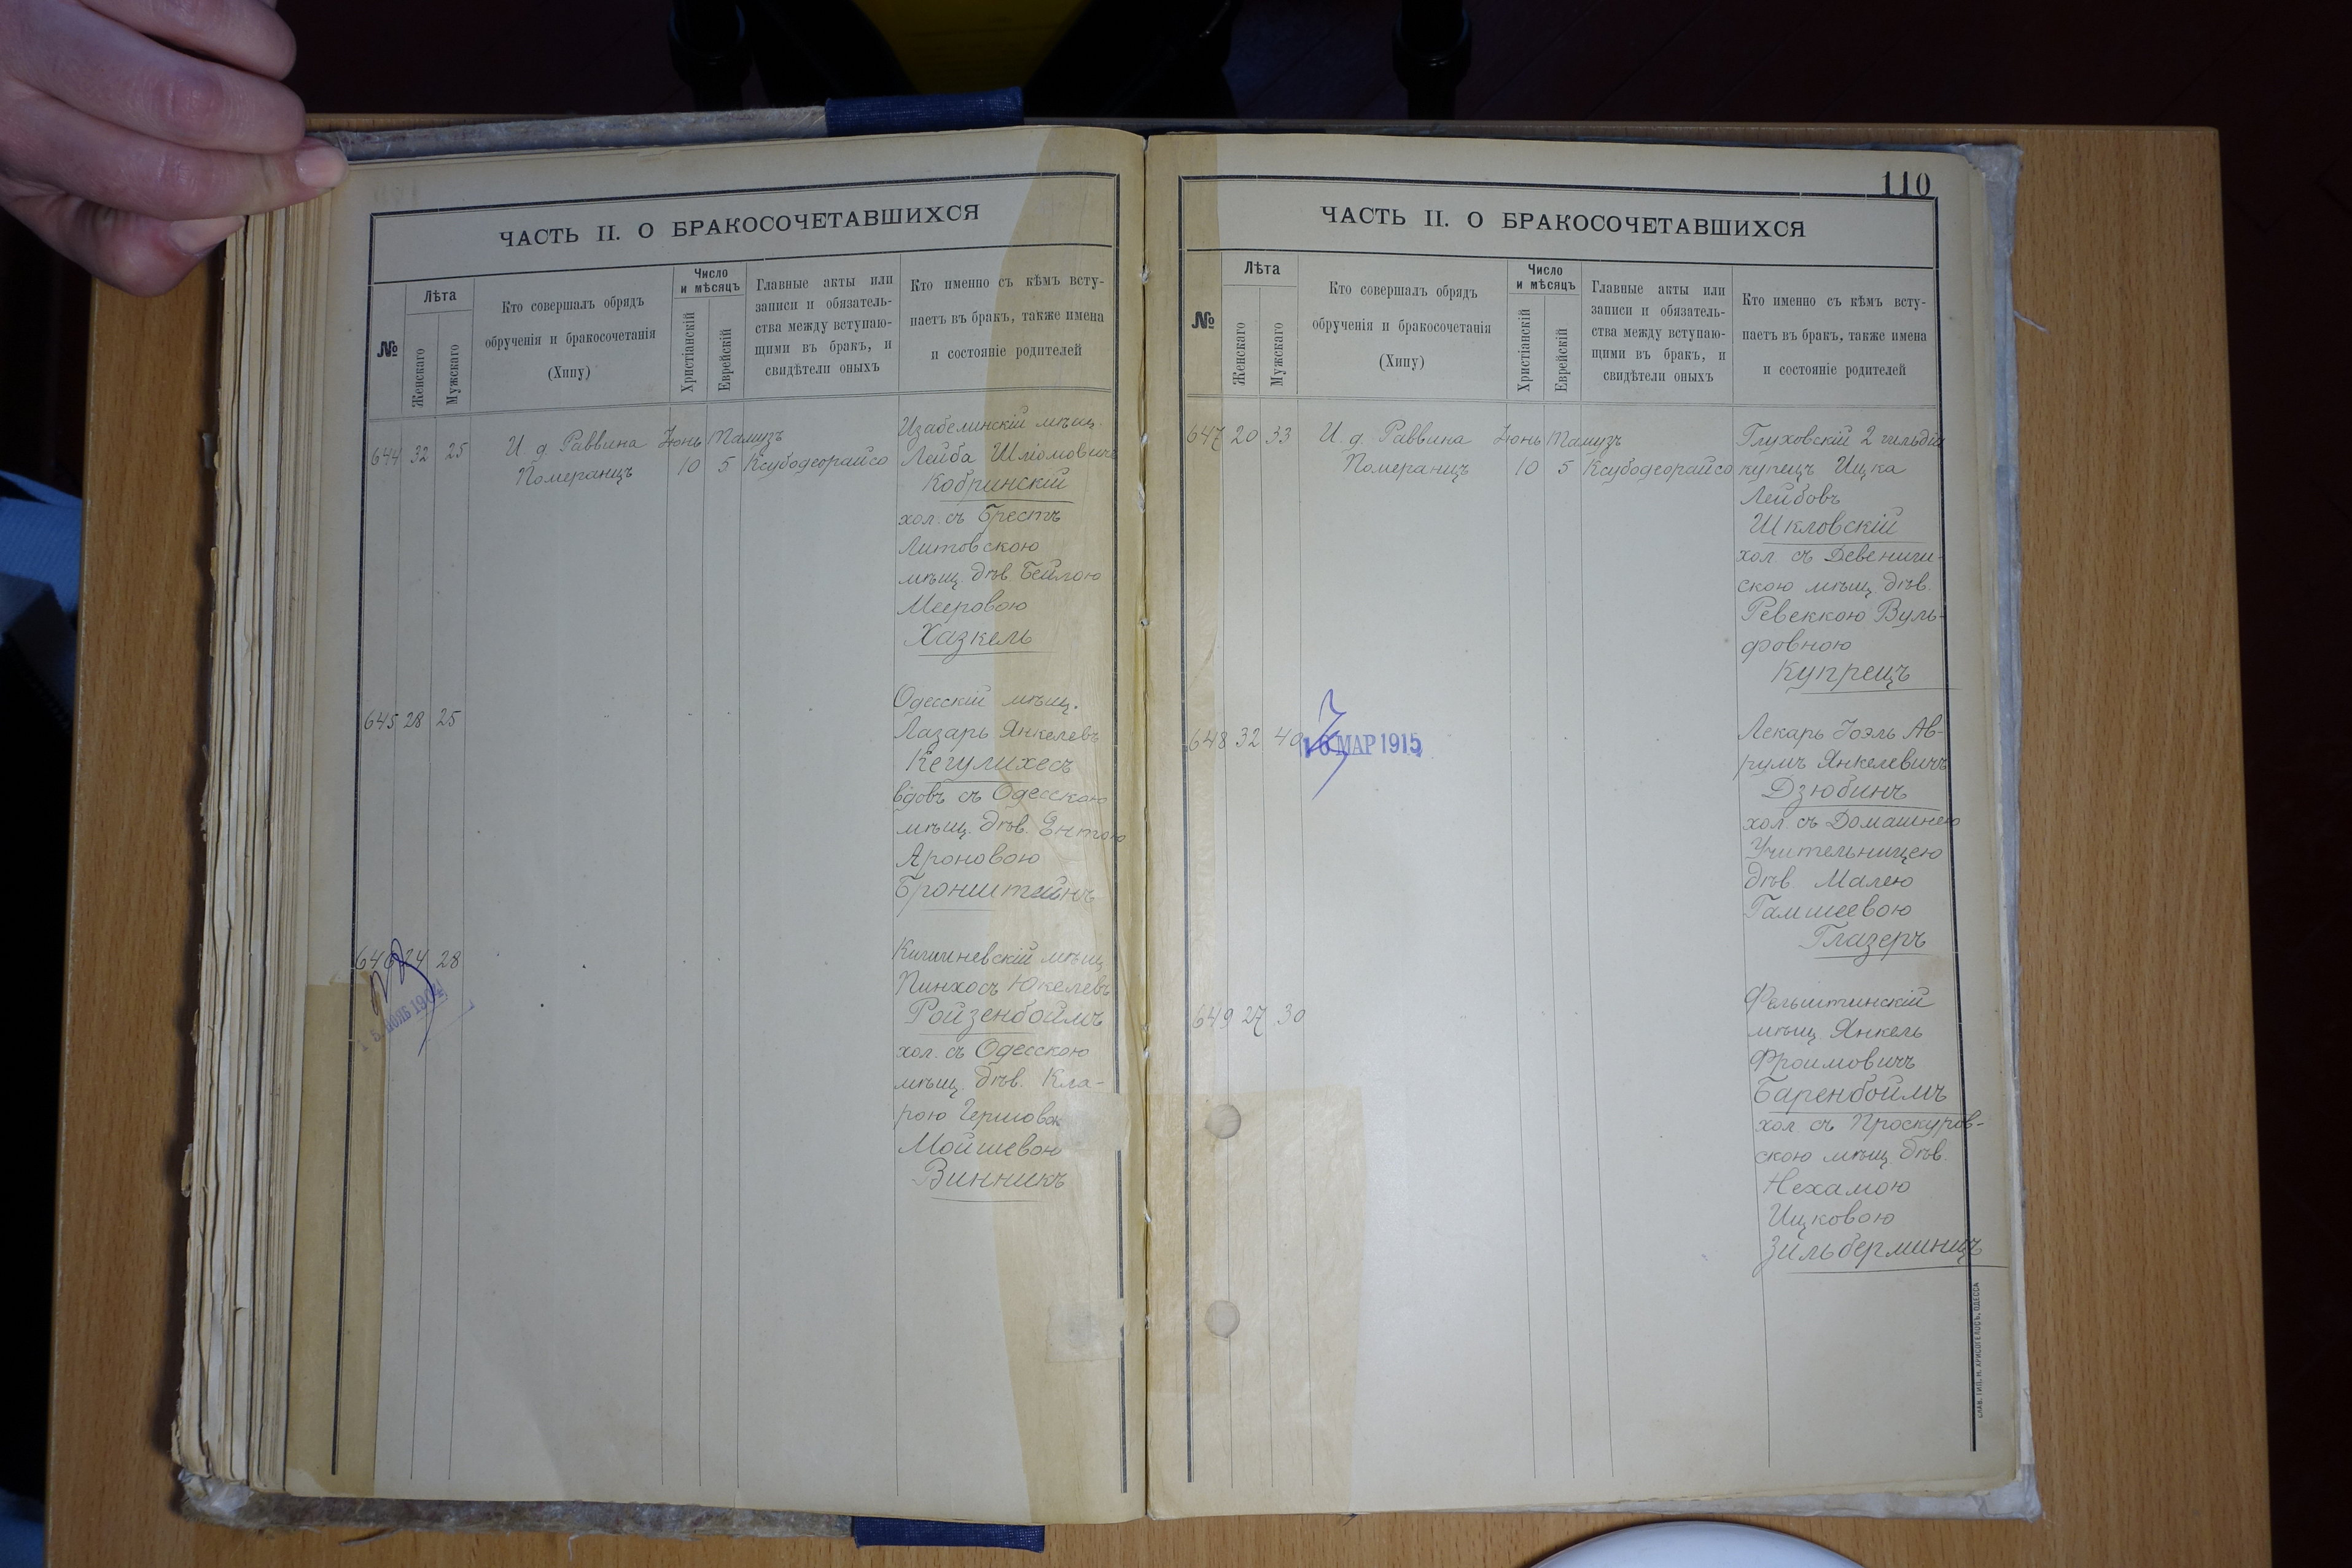 ЧАСТЬ II. О БРАКОСОЧЕТАВШИХСЯ
№
Лѣта
Женскаго
Мужскаго
Кто совершалъ обрядъ
обрученія и бракосочетанія
(Хипу)
Число
и мѣсяцъ
Христіанскій
Еврейскій
Главные акты или
записи и обязатель-
ства между вступаю-
щими въ бракъ, и
свидѣтели оныхъ
Кто именно съ кѣмъ всту-
паетъ въ бракъ, также имена
и состояніе родителей
644 32 25
И. д. Раввина
Померанцъ
Іюнь Тамузъ
10 5 Ксубодеорайсо
Изабелинскій мѣщ.
Лейба Шліомовичъ
Кобринскій
хол. съ Брестъ
Литовскою
мѣщ. дѣв. Бейлою
Мееровою
Хазкель
645 28 25
Одесскій мѣщ.
Лазарь Янкелевъ
Кегулихесъ
вдовъ съ Одесскою
мѣщ. дѣв. Ентою
Ароновою
Бронштейнъ
646 24 28
Кишиневскій мѣщ
Пинхосъ Юкелевъ
Ройзенбоймъ
хол. съ Одесскою
мѣщ. дѣв. Кла-
рою Гершовою
Мойшевою
Винникъ
110
ЧАСТЬ II. О БРАКОСОЧЕТАВШИХСЯ
№
Лѣта
Женскаго
Мужскаго
Кто совершалъ обрядъ
обрученія и бракосочетанія
(Хипу)
Число
и мѣсяцъ
Христіанскій
Еврейскій
Главные акты или
записи и обязатель-
ства между вступаю-
щими въ бракъ, и
свидѣтели оныхъ
Кто именно съ кѣмъ всту-
паетъ въ бракъ, также имена
и состояніе родителей
647 20 33
И. д. Раввина
Померанцъ
Іюнь Тамузъ
10 5 Ксубодеорайсо
Глуховскій 2 гильдіи
купецъ Ицка
Лейбовъ
Шкловскій
хол съ Девениш-
скою мѣщ. дѣв.
Ревеккою Вуль-
фовною
Купрецъ
648 32 40
16 МАР 1915
Лекарь Іоэль Ав-
румъ Янкелевичъ
Дзюбинъ
хол. съ Домашнею
Учительницею
дѣв. Малею
Гамшеевою
Глазеръ
649 27 30
Фельштинскій
мѣщ. Янкель
Фроимовичъ
Баренбоймъ
хол. съ Проскуров-
скою мѣщ. дѣв.
Нехамою
Ицковою
Зильберминцъ
СЛАВ. ТИП. Н. ХРИСОГЕЛОСЪ, ОДЕССА